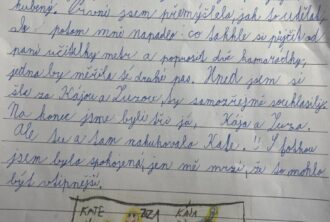 hubený. Prvně jsem přemýšlela, jak to udělat.
potom mně napadlo co takhle si půjčit od
paní učitelky metr a poprosit dvě kamarádky,
jedna by měřila té druhé pas. Hned jsem si
šla za Kájou a Zuzou, ty samozřejmě souhlasily.
Na konec jsme byli tři já, Kája a Zuza.
Ale tu a tam nakukovala Katе. S fotkou
jsem byla spokojená, jen mě mrzí, že to mohlo
být vtipnější.
KATE ZUZA KÁJA